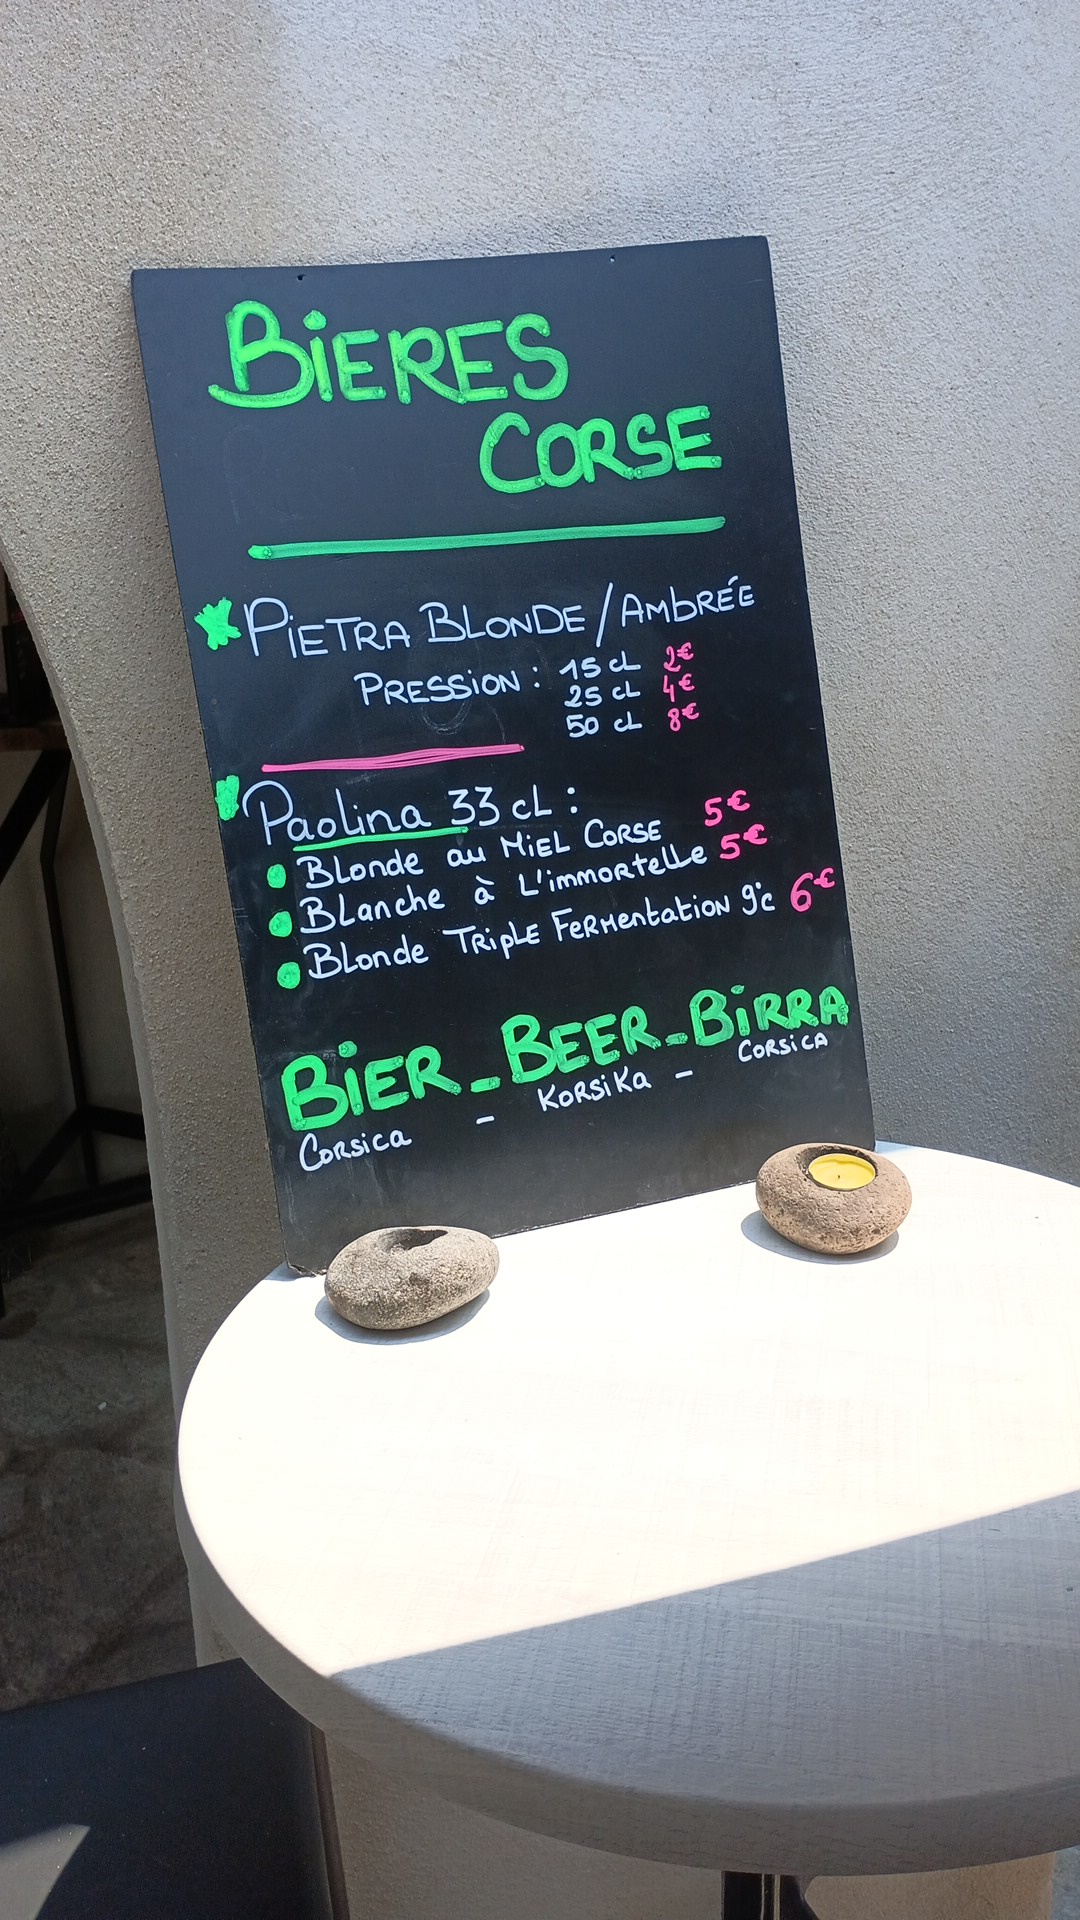 BIERES
CORSE
PIETRA BLONDE / AMBRÉE
PRESSION : 15 cL 2€
25 cL 4€
50 cL 8€
Paolina 33 cL :
BLonde au MIEL CORSE 5€
BLanche à L'immortelle 5€
BLonde TRIPLE FERMentation 9°c 6€
BIER - BEER - BIRRA
Corsica - KORSIKA - CORSICA